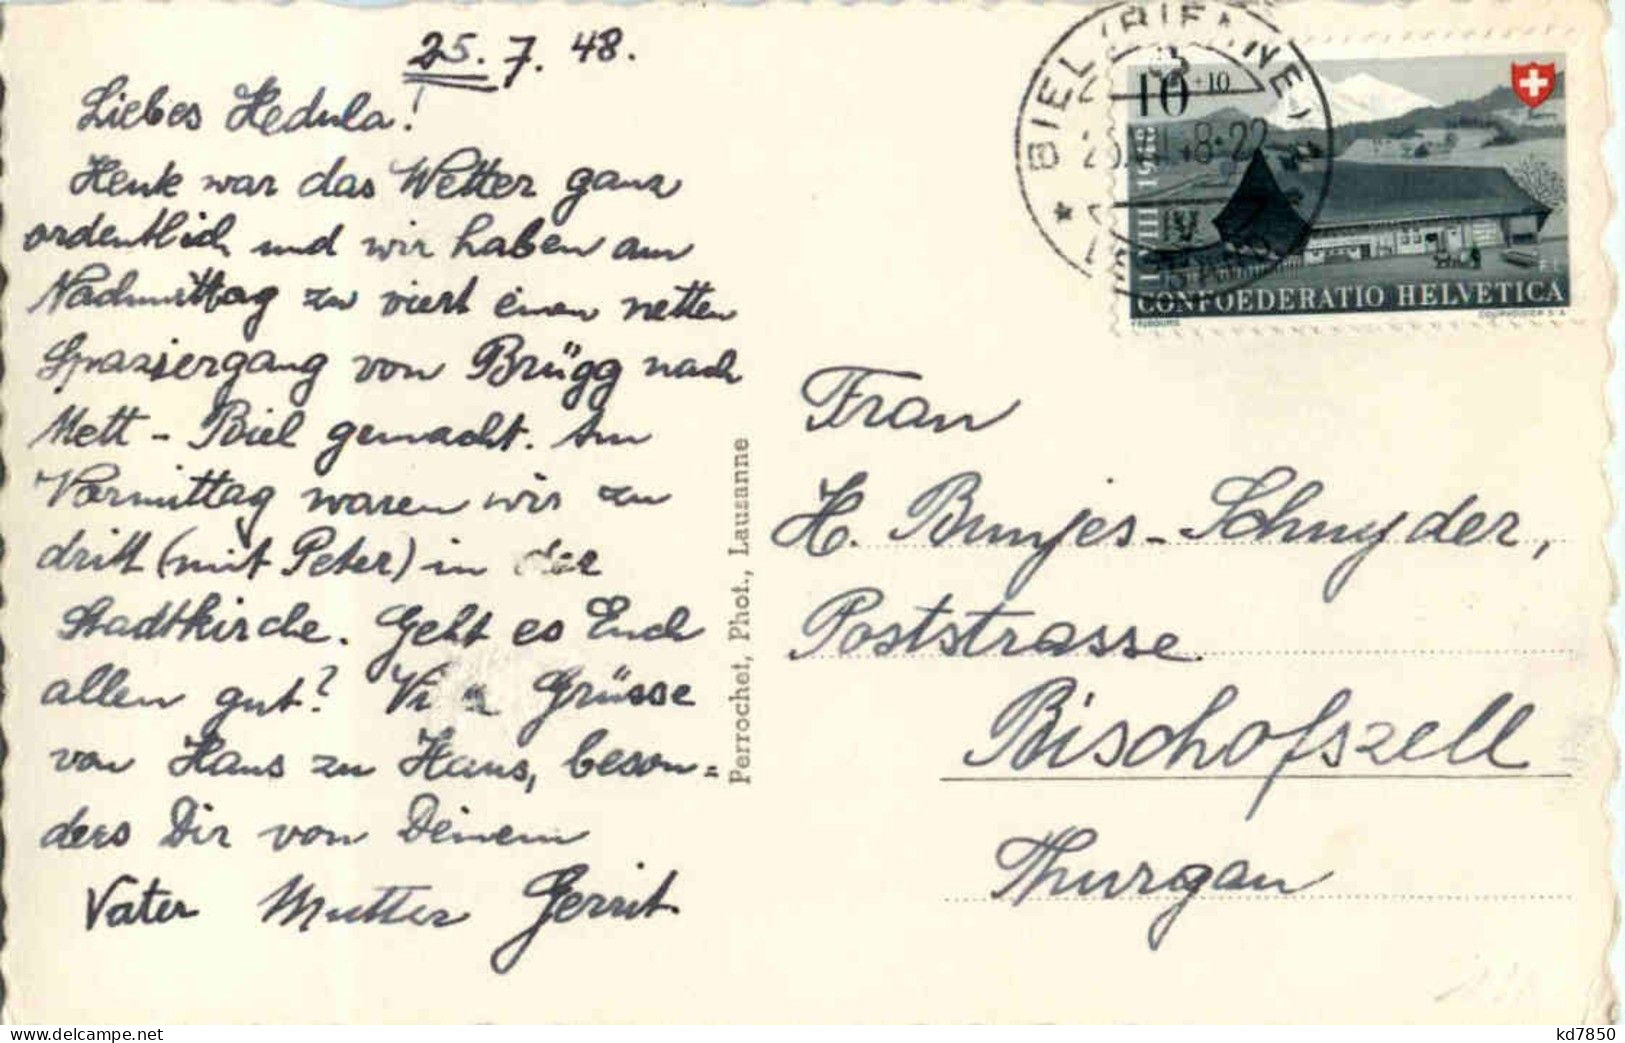 25. 7. 48.
Liebes Hedula!
Heute war das Wetter ganz
ordentlich und wir haben am
Nachmittag zu viert einen netten
Spaziergang von Brügg nach
Mett - Biel gemacht. Am
Vormittag waren wir zu
dritt (mit Peter) in der
Stadtkirche. Geht es Euch
allen gut? Grüsse
von Haus zu Haus, beson=
ders Dir von Deinem
Vater Mutter Gerrit.
Perrochet, Phot., Lausanne
BIEL (BIENNE) 1
48-22
10 +10
1.VIII 1948
CONFOEDERATIO HELVETICA
FRIBOURG COURVOISIER S.A.
Frau
H. Bunjes-Schnyder,
Poststrasse.
Bischofszell
Thurgau
www.delcampe.net
kd7850